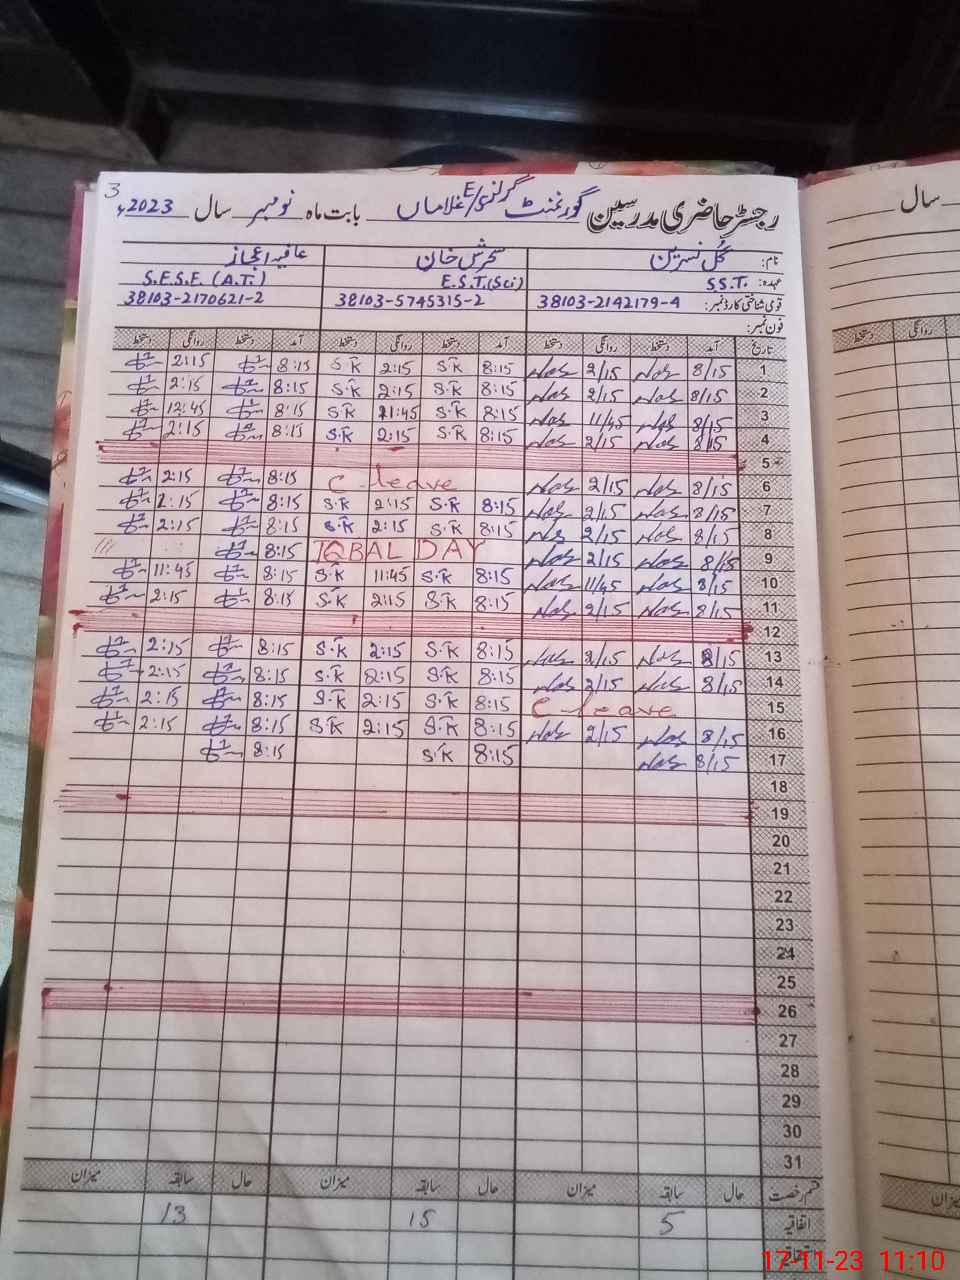 3
رجسٹر حاضری مدرسین گورنمنٹ گرلز E/S غلاماں بابت ماہ نومبر سال 2023ء
سال
نام: گل نسرین سحرش خان عافیہ اعجاز
عہدہ: S.S.T. E.S.T.(Sci) S.E.S.E.(A.T.)
قومی شناختی کارڈ نمبر: 38103-2142179-4 38103-5745315-2 38103-2170621-2
فون نمبر:
تاریخ آمد دستخط روانگی دستخط آمد دستخط روانگی دستخط آمد دستخط روانگی دستخط
1 8/15 2/15 8:15 S.K 2:15 S.K 8:15 2:15
2 8/15 2/15 8:15 S.K 2:15 S.K 8:15 2:15
3 8/15 11/45 8:15 S.K 11:45 S.K 8:15 12:45
4 8/15 2/15 8:15 S.K 2:15 S.K 8:15 2:15
5
6 8/15 2/15 C leave 8:15 2:15
7 8/15 2/15 8:15 S.K 2:15 S.K 8:15 2:15
8 8/15 2/15 8:15 S.K 2:15 S.K 8:15 2:15
9 8/15 2/15 IQBAL DAY 8:15
10 8/15 11/45 8:15 S.K 11:45 S.K 8:15 11:45
11 8/15 2/15 8:15 S.K 2:15 S.K 8:15 2:15
12
13 8/15 2/15 8:15 S.K 2:15 S.K 8:15 2:15
14 8/15 2/15 8:15 S.K 2:15 S.K 8:15 2:15
15 C leave 8:15 S.K 2:15 S.K 8:15 2:15
16 8/15 2/15 8:15 S.K 2:15 S.K 8:15 2:15
17 8/15 8:15 S.K 8:15
18
19
20
21
22
23
24
25
26
27
28
29
30
31
قسم رخصت حال سابقہ میزان حال سابقہ میزان حال سابقہ میزان
اتفاقیہ 5 15 13
17-11-23 11:10